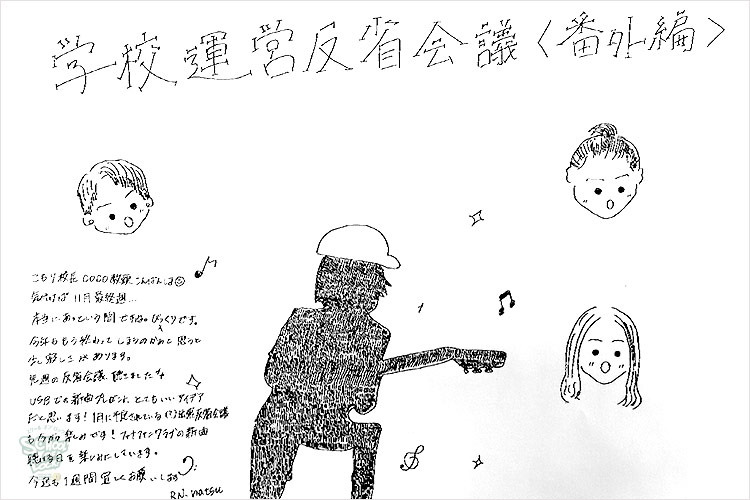 学校運営反省会議〈番外編〉
こもり校長 COCO教頭 こんばんしま
気付けば 11月最終週...
本当にあっという間ですね。びっくりです。
今年ももう終わってしまうのかぁと思うと
少し寂しさがあります。
先週の反省会議、聴きました
USBでの新曲プレゼント、とてもいいアイデア
だと思います! 1月に予定されている(?)出張反省会議
も今から楽しみです! の新曲
聴ける日を楽しみにしています。
今週も1週間宜しくお願いします
RN. natsu